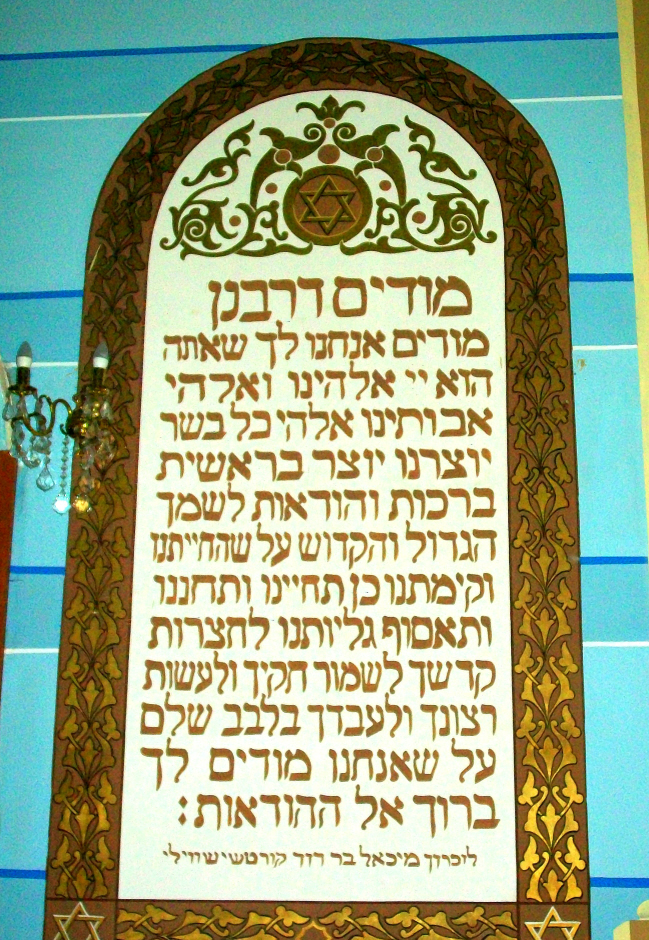 מודים דרבנן
מודים אנחנו לך שאתה
הוא יי אלהינו ואלהי
אבותינו אלהי כל בשר
יוצרנו יוצר בראשית
ברכות והודאות לשמך
הגדול והקדוש על שהחייתנו
וקימתנו כן תחיינו ותחננו
ותאסוף גליותנו לחצרות
קדשך לשמור חקיך ולעשות
רצונך ולעבדך בלבב שלם
על שאנחנו מודים לך
ברוך אל ההודאות:
לזכרון מיכאל בר דוד